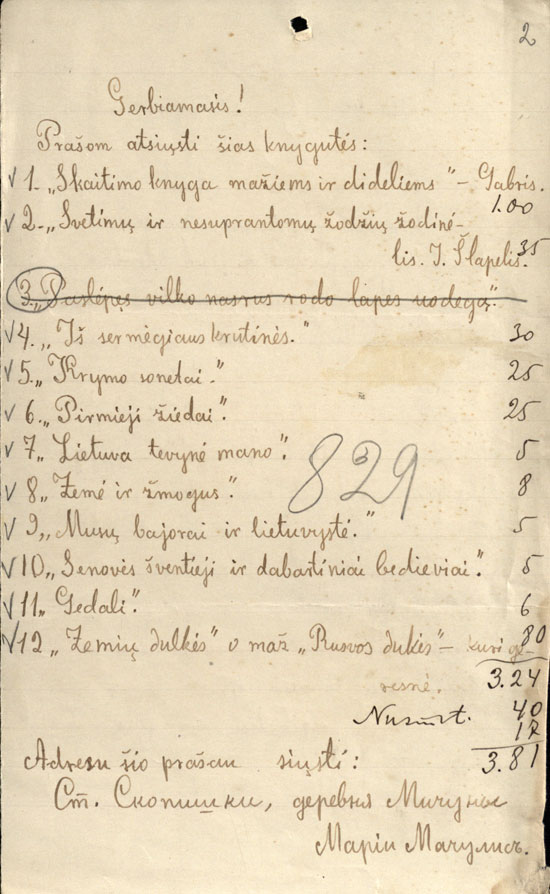 2
Gerbiamasis!
Prašom atsiųsti šias knygutės:
√ 1. „Skaitimo knyga mažiems ir dideliems" – Gabris.
1.00
√ 2. „Svetimų ir nesuprantomų žodžių žodinė-
lis. J. Šlapelis. 35
3. „Paslėpęs vilko nasrus rodo lapes uodegą".
√ 4. „Iš sermėgiaus krutinės." 30
√ 5. „Krymo sonetai". 25
√ 6. „Pirmieji žiedai". 25
√ 7. „Lietuva tevynė mano". 5
829
√ 8. „Žemė ir žmogus". 8
√ 9. „Musų bajorai ir lietuvystė." 5
√ 10 „Senovės šventieji ir dabartiniai bedieviai". 5
√ 11. „Gedali". 6
√ 12 „Žemių dulkės" o maž „Rusvos dukės" – kuri ge- 80
resnė. 3.24
40
17
3.81
Adresu šio prašau siųsti:
Ст. Скопишки, деревня Мичуны
Марiи Мачулисъ.